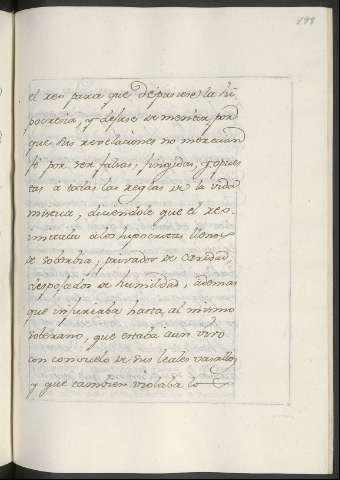 el reo para que depusiese la hi
pocresia, y dejase de mentir, por
que sus revelaciones no merecian
fé por ser falsas, fingidas, y opues
tas a todas las reglas de la vida
mistica, diciendole que el reo
imitaba á los hipocritas llenos
de soberbia, privados de caridad,
despojados de humildad, ademas
que injuriaba hasta al mismo
soberano, que estaba aun vivo
con consuelo de sus leales vasallos
y que tambien violaba lo